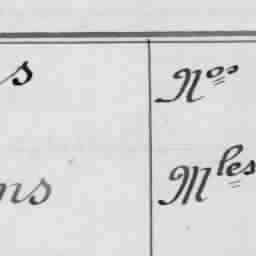 s Nos
ns Mles